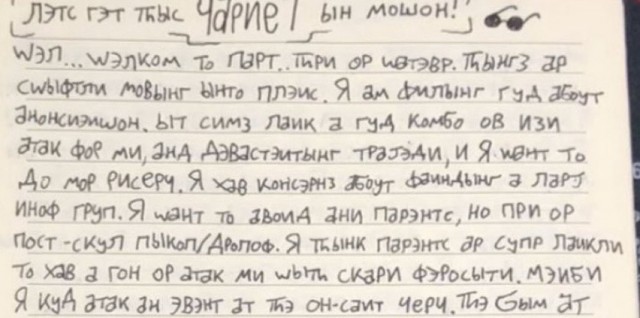 ЛЭТС ГЭТ ТҺЫС ЧАРИЕТ ЫН МОШОН!
WЭЛ... WЭЛКОМ ТО ПАРТ.. ТҺРИ ОР WАТЭВР. ТҺЫНГЗ АР
СWЫФТЛИ МОВЫНГ ЫНТО ПЛЭИС. Я АМ ФИЛЫНГ ГУД АБОУТ
АНОНСИЭИШОН. ЫТ СИМЗ ЛАИК А ГУД КОМБО ОВ ИЗИ
АТАК ФОР МИ, АНД ДЭВАСТЭИТЫНГ ТРАЈЭДИ, И Я WАНТ ТО
ДО МОР РИСЕРЧ. Я ХАВ КОНСЭРНЗ АБОУТ ФАИНДЫНГ А ЛАРЈ
ИНОФ ГРУП. Я WАНТ ТО АВОИД АНИ ПАРЭНТС, НО ПРИ ОР
ПОСТ-СКУЛ ПЫКОП/ДРОПОФ. Я ТҺЫНК ПАРЭНТС АР СУПР ЛАИКЛИ
ТО ХАВ А ГОН ОР АТАК МИ WЫТҺ СКАРИ ФЭРОСЫТИ. МЭИБИ
Я КУД АТАК АН ЭВЭНТ АТ ТҺЭ ОН-САИТ ЧЕРЧ. ТҺЭ АТ